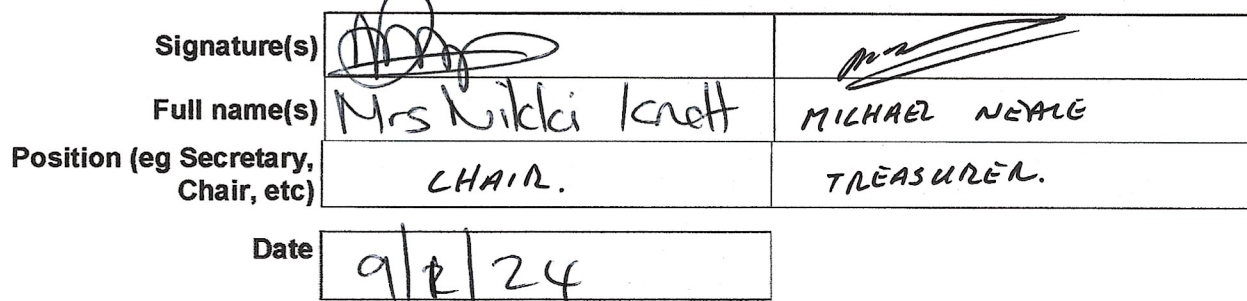 Signature(s)
Full name(s) Mrs Nikki Knott MICHAEL NEALE
Position (eg Secretary,
Chair, etc) CHAIR. TREASURER.
Date 9/ /24